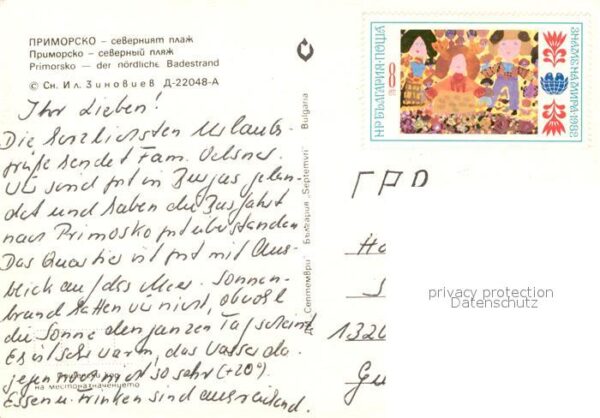 ПРИМОРСКО – северният плаж
Приморско – северный пляж
Primorsko — der nördliche Badestrand
© Сн. Ил. Зиновиев Д-22048-А
Ihr Lieben!
Die herzlichsten Urlaubs-
grüße sendet Fam. Oelsner.
Wir sind gut in Burgas gelan-
det und haben die Busfahrt
nach Primosko gut überstanden.
Das Quartier ist gut mit Aus-
blick auf das Meer. Sonnen-
brand hatten wir nicht, obwohl
die Sonne den ganzen Tag scheint.
Es ist sehr warm, das Wasser da-
gegen noch nicht so sehr (+20°)
Essen u. Trinken sind ausreichend.
на местоназначението
България „Septemvri" Bulgaria
НР БЪЛГАРИЯ·ПОЩА
8
ЗНАМЕ НА МИРА·1982
ГРD
1320
privacy protection
Datenschutz